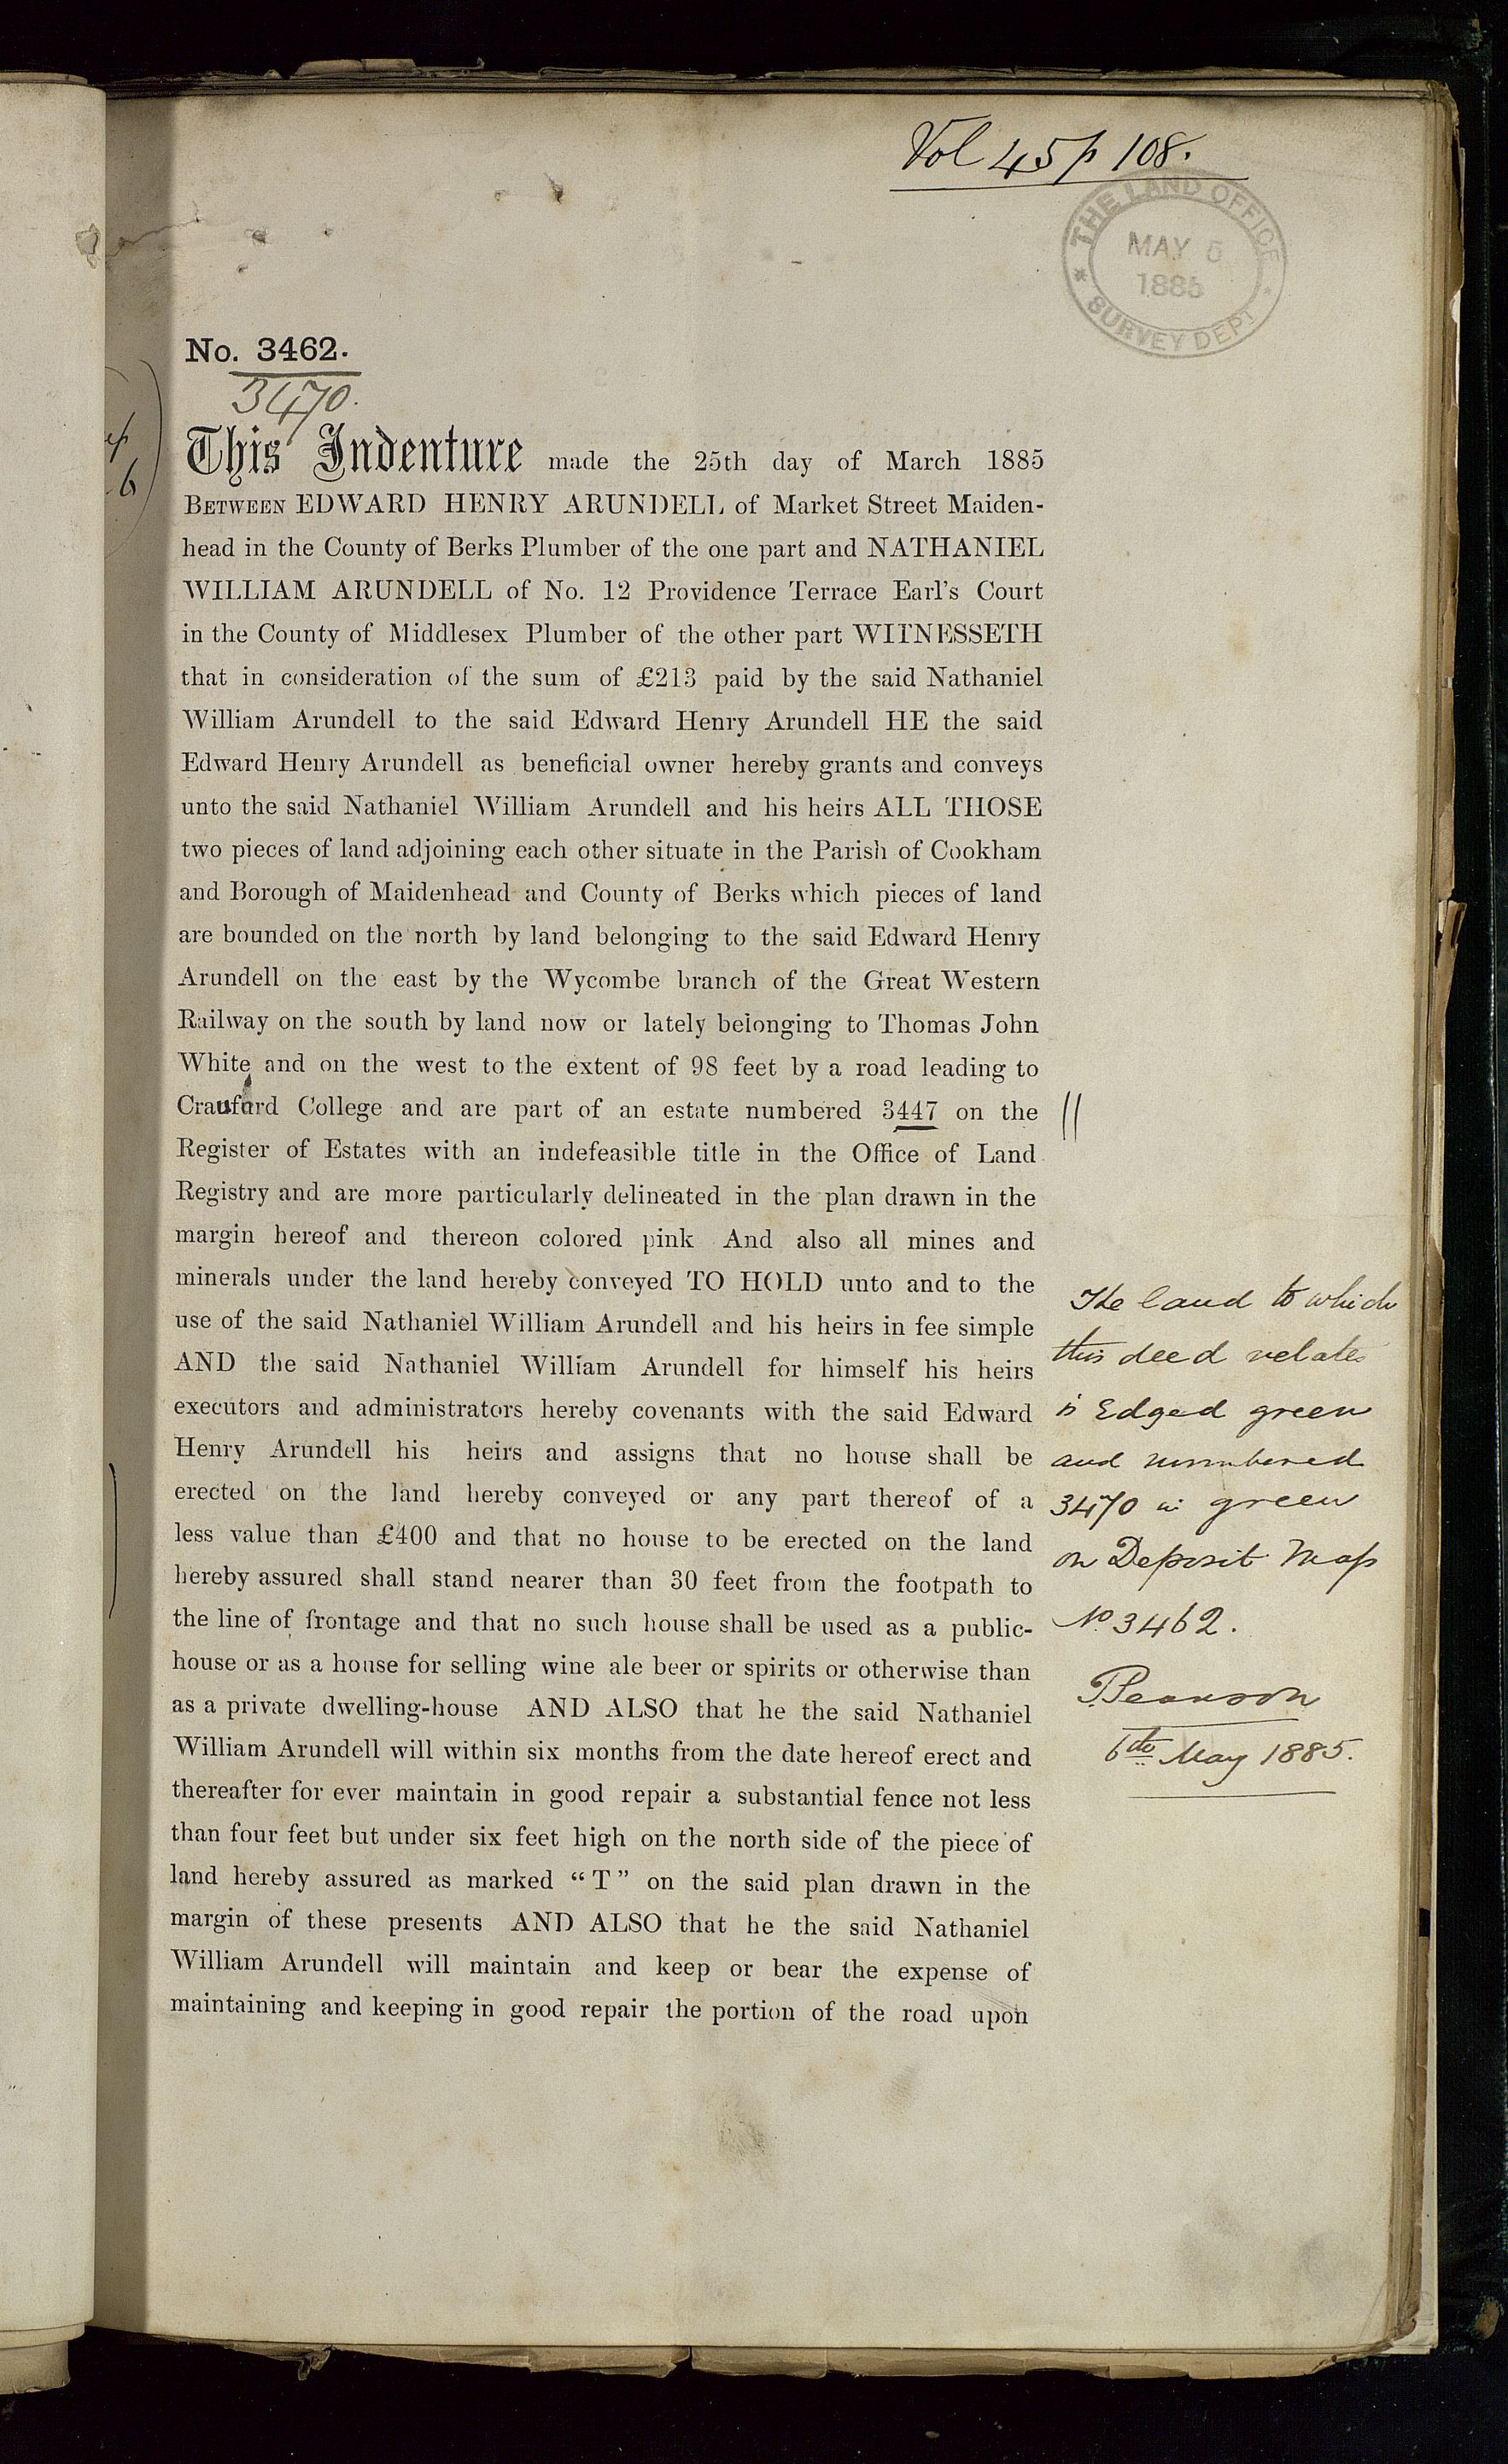 Vol 45 p 108.
THE LAND OFFICE
MAY 5
1885
SURVEY DEPT
No. 3462.
3470.
This Indenture made the 25th day of March 1885
BETWEEN EDWARD HENRY ARUNDELL of Market Street Maiden-
head in the County of Berks Plumber of the one part and NATHANIEL
WILLIAM ARUNDELL of No. 12 Providence Terrace Earl's Court
in the County of Middlesex Plumber of the other part WITNESSETH
that in consideration of the sum of £213 paid by the said Nathaniel
William Arundell to the said Edward Henry Arundell HE the said
Edward Henry Arundell as beneficial owner hereby grants and conveys
unto the said Nathaniel William Arundell and his heirs ALL THOSE
two pieces of land adjoining each other situate in the Parish of Cookham
and Borough of Maidenhead and County of Berks which pieces of land
are bounded on the north by land belonging to the said Edward Henry
Arundell on the east by the Wycombe branch of the Great Western
Railway on the south by land now or lately belonging to Thomas John
White and on the west to the extent of 98 feet by a road leading to
Craufurd College and are part of an estate numbered 3447 on the
Register of Estates with an indefeasible title in the Office of Land
Registry and are more particularly delineated in the plan drawn in the
margin hereof and thereon colored pink And also all mines and
minerals under the land hereby conveyed TO HOLD unto and to the
use of the said Nathaniel William Arundell and his heirs in fee simple
AND the said Nathaniel William Arundell for himself his heirs
executors and administrators hereby covenants with the said Edward
Henry Arundell his heirs and assigns that no house shall be
erected on the land hereby conveyed or any part thereof of a
less value than £400 and that no house to be erected on the land
hereby assured shall stand nearer than 30 feet from the footpath to
the line of frontage and that no such house shall be used as a public-
house or as a house for selling wine ale beer or spirits or otherwise than
as a private dwelling-house AND ALSO that he the said Nathaniel
William Arundell will within six months from the date hereof erect and
thereafter for ever maintain in good repair a substantial fence not less
than four feet but under six feet high on the north side of the piece of
land hereby assured as marked "T" on the said plan drawn in the
margin of these presents AND ALSO that he the said Nathaniel
William Arundell will maintain and keep or bear the expense of
maintaining and keeping in good repair the portion of the road upon
The land to which
this deed relates
is Edged green
and numbered
3470 in green
on Deposit Map
No 3462.
Pearson
6th May 1885.